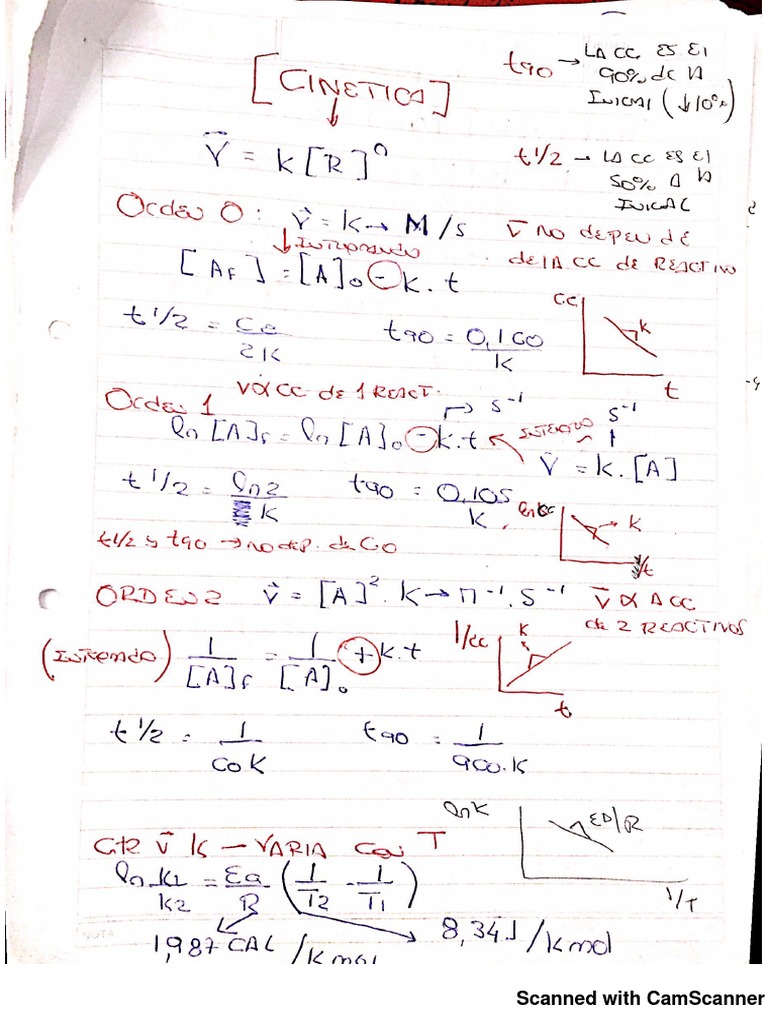 [CINETICA]
t90 → LA CC ES El
90% de lA
INICIAl (↓10%)
V = K [R]^n
t 1/2 → LA CC ES El
50% A lA
INICIAL
Orden 0 : V = K → M/s V NO depende
↓ Integrando de lA CC de REACTIVO
[AF] = [A]₀ - K . t
CC
K
t
t 1/2 = Co / 2K t90 = 0,1 Co / K
Orden 1 V α CC de 1 REACT.
→ S⁻¹ S⁻¹
ln [A]F = ln [A]₀ - K.t ← INTEGRO V = K. [A]
t 1/2 = ln2 / K t90 = 0,105 / K
ln CC
K
t
t1/2 y t90 → no dep. de CO
ORDEN 2 V = [A]² . K → M⁻¹. S⁻¹ V α A CC
de 2 REACTIVOS
(Integrando) 1/[A]F = 1/[A]₀ + K.t
1/CC
K
t
t 1/2 = 1 / CoK t90 = 1 / 9CO.K
ln K
Ea/R
1/T
Cte V K – VARIA con T
ln K1/K2 = Ea/R (1/T2 - 1/T1)
1,987 CAL /K mol 8,34 J /K mol
NOTA
Scanned with CamScanner